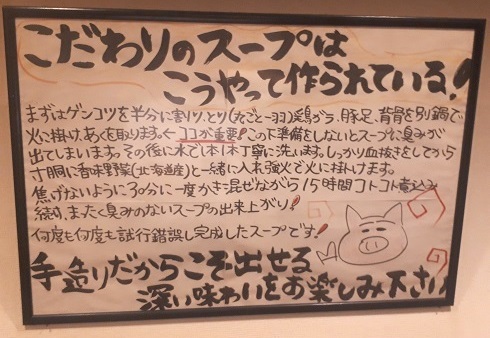 こだわりのスープは
こうやって作られている!
まずはゲンコツを半分に割り、とり(丸ごと一羽)鶏ガラ、豚足、背骨を別鍋で
火に掛け、あくを取ります。← ココが重要!この下準備をしないとスープに臭みが
出てしまいます。その後に水で1本1本丁寧に洗います。しっかり血抜きをしてから
寸胴に香味野菜(北海道産)と一緒に入れ強火で火に掛けます。
焦げないように30分に一度かき混ぜながら15時間コトコト煮込み
続け、まったく臭みのないスープの出来上がり!
何度も何度も試行錯誤し完成したスープです!
手造りだからこそ出せる
深い味わいをお楽しみ下さい